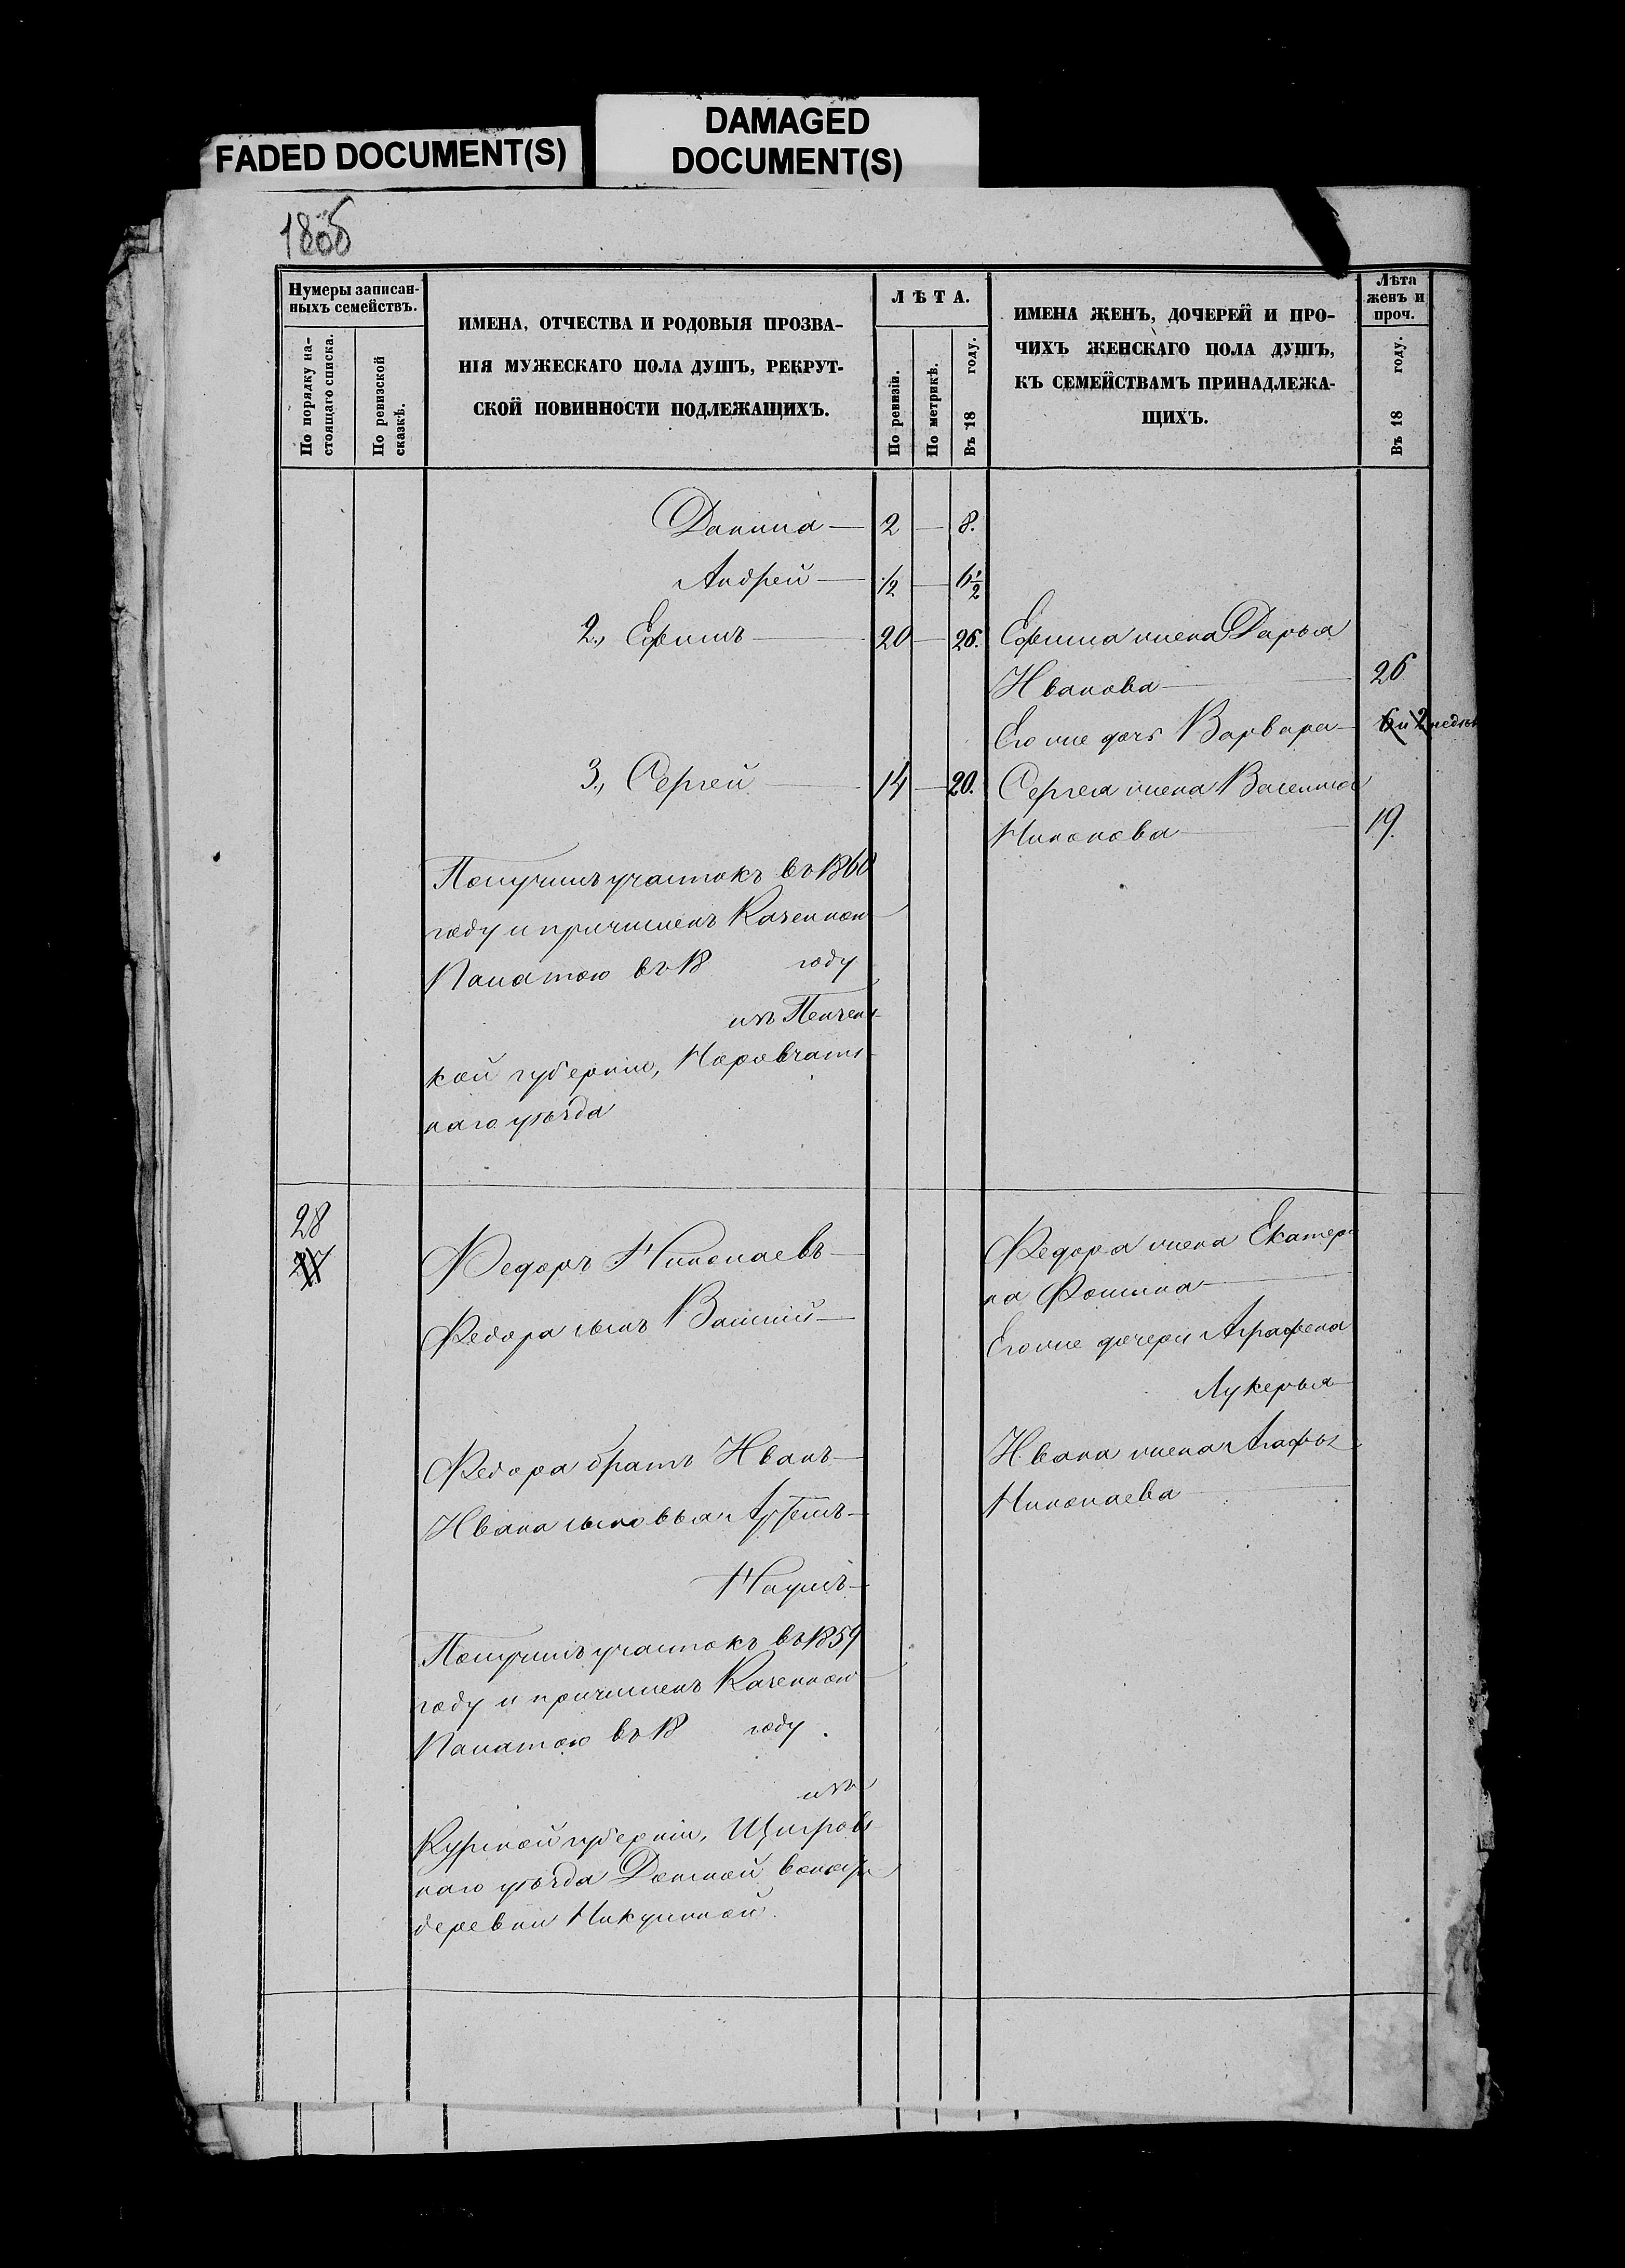 FADED DOCUMENT(S)
DAMAGED
DOCUMENT(S)
Нумеры записан-
ныхъ семействъ.
По порядку на-
стоящаго списка.
По ревизской
сказкѣ.
ИМЕНА, ОТЧЕСТВА И РОДОВЫЯ ПРОЗВА-
НІЯ МУЖЕСКАГО ПОЛА ДУШЪ, РЕКРУТ-
СКОЙ ПОВИННОСТИ ПОДЛЕЖАЩИХЪ.
ЛѢТА.
По ревизіи.
По метрикѣ.
Въ 18 году.
ИМЕНА ЖЕНЪ, ДОЧЕРЕЙ И ПРО-
ЧИХЪ ЖЕНСКАГО ПОЛА ДУШЪ,
КЪ СЕМЕЙСТВАМЪ ПРИНАДЛЕЖА-
ЩИХЪ.
Лѣта
женъ и
проч.
Въ 18 году.
Данила — 2 — 8.
Андрей — 1/2 — 6 1/2
2., Ефимъ — 20 — 26. Ефима жена Дарья
Иванова — 26
Его же дочь Варвара — 6 и 2 недѣл
3., Сергей — 14 — 20. Сергея жена Василиса
Никонова — 19.
Получилъ участокъ въ 1860
году и причисленъ Казенною
Палатою въ 18 году
изъ Пензенс-
кой губерніи, Наровчатс-
каго уѣзда
28
27
Федоръ Николаевъ —
Федора жена Екатери-
на Фомина —
Федора сынъ Василий —
Его же дочери Аграфена
Лукерья —
Федора братъ Иванъ —
Ивана жена Агафья
Николаева —
Ивана сыновья Артемъ —
Наумъ —
Получилъ участокъ въ 1859
году и причисленъ Казенною
Палатою въ 18 году.
изъ
Курской губерніи, Щигровс-
каго уѣзда волости
деревни Никулиной.